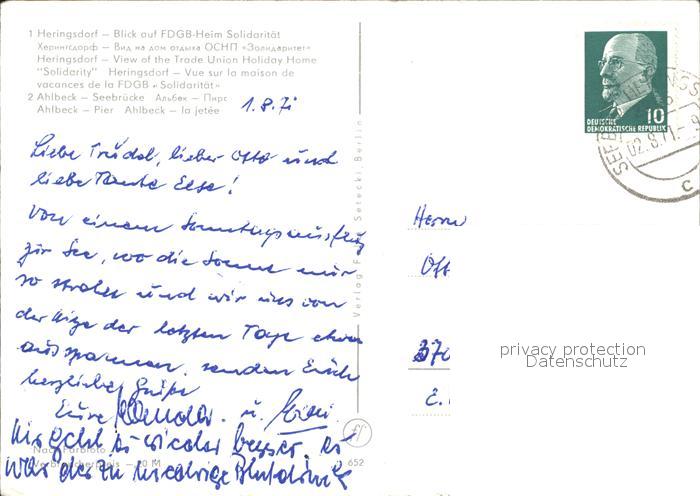 1 Heringsdorf – Blick auf FDGB-Heim Solidarität
Херингсдорф – Вид на дом отдыха ОСНП «Золидаритет»
Heringsdorf – View of the Trade Union Holiday Home
"Solidarity" Heringsdorf – Vue sur la maison de
vacances de la FDGB « Solidarität»
2 Ahlbeck – Seebrücke Альбек – Пирс
Ahlbeck – Pier Ahlbeck – la jetée
1.8.71
Liebe Trudel, lieber Otto und
liebe Tante Else!
Von einem Sonntagsausflug
zur See, wo die Sonne nur
so strahlt und wir uns von
der Hitze der letzten Tage etwas
ausspannen, senden Euch
herzliche Grüße
Eure u.
Mir geht es wieder besser, es
war der zu niedrige Blutdruck
Verlag Setecki, Berlin
652
10
DEUTSCHE
DEMOKRATISCHE REPUBLIK
02.8.71
c
Herrn
Ott
370
privacy protection
Datenschutz